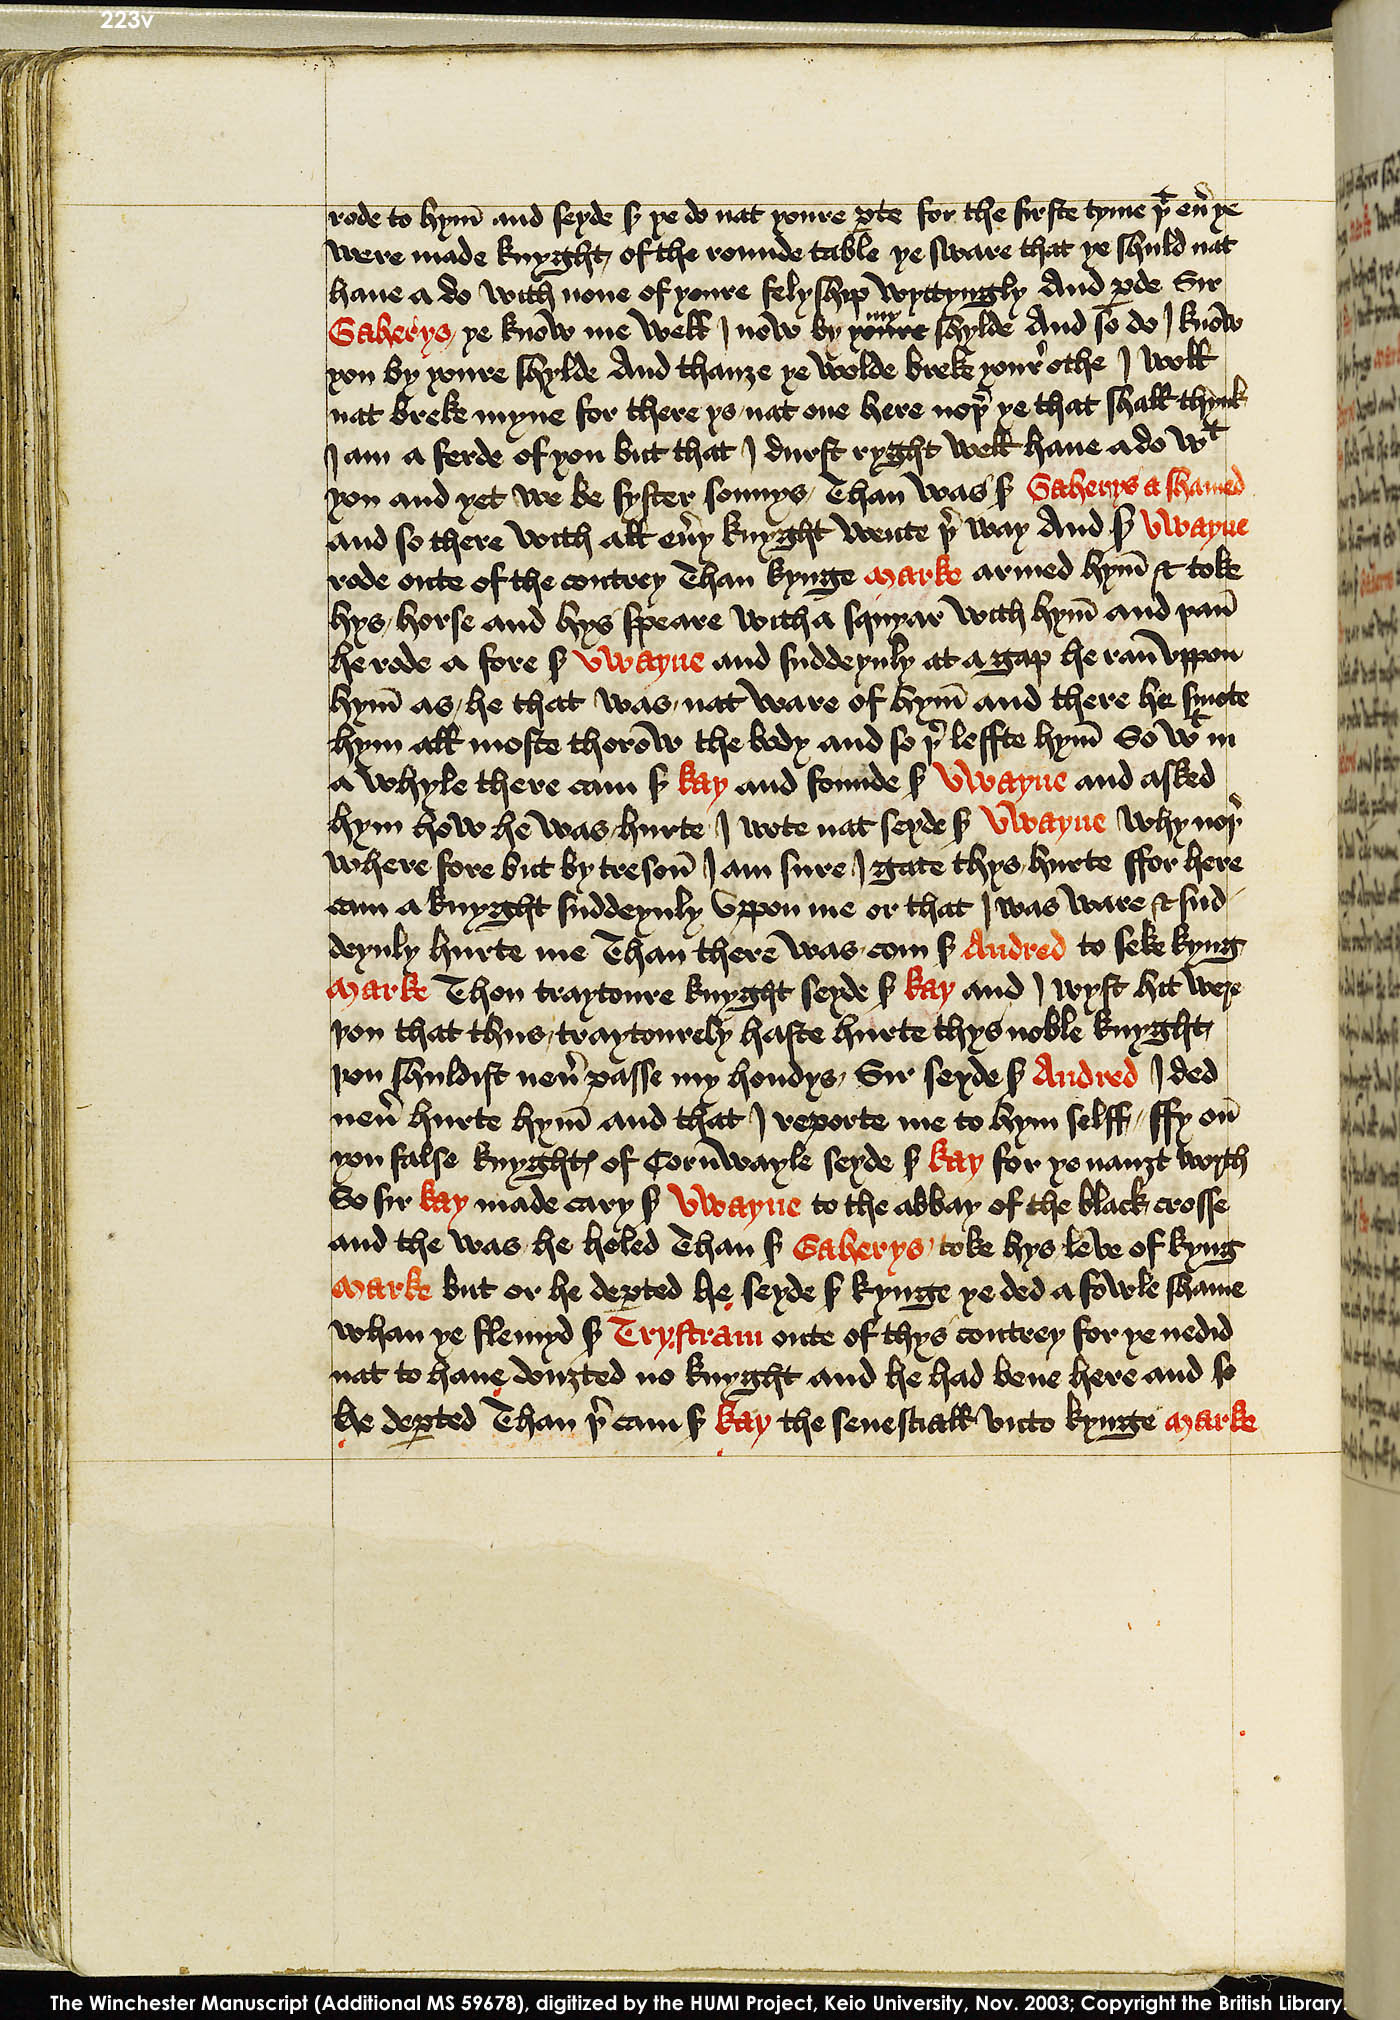 223v
rode to hym̄ and seyde sʳ ye do nat youre ꝑte for the firste tyme þᵗ eũ ye
were made knyght of the rounde table ye sware that ye shuld nat
haue a do with none of youre felyship wyttyngly And ꝑde Sir
Gaherys ye know me well I now by my shylde And so do I know
you by youre shylde And thauze ye wolde breke your othe I woll
nat breke myne for there ys nat one here noþʳ ye that shall thynk
I am a ferde of you but that I durst ryght well haue ado wᵗ
you and yet we be syster sonnys Than was sʳ Gaherys a shamed
and so there with all eũy knyght wente þʳ way And sʳ Vwayne
rode oute of the contrey Than kynge Marke armed hym̄ & toke
hys horse and hys speare with a squyar with hym̄ and þan̄
he rode a fore sʳ Vwayne and suddeynly at a gap he ran̄ vppon
hym̄ as he that was nat ware of hym̄ and there he smote
hym all moste thorow the body and so þʳ leffte hym̄ So wᵗ in
a whyle there cam sʳ kay and founde sʳ Vwayne and asked
hym how he was hurte I wote nat seyde sʳ Vwayne why noþʳ
where fore but by treson̄ I am sure I gate thys hurte ffor here
cam a knyght suddeynly vppon me or that I was ware & sud
deynly hurte me Than there was com sʳ Andred to seke kyng
Marke Thou traytoure knyght seyde sʳ kay and I wyst hit weꝛe
you that thus traytourely haste hurte thys noble knyght
þou shuldist neũ passe my hondys Sir seyde sʳ Andred I ded
neũ hurte hym̄ and that I reporte me to hym selff ffy on̄
you false knyghtꝭ of Corn̄wayle seyde sʳ kay for ye nauzt wryth
So sir kay made cary sʳ Vwayne to the abbay of the black crosse
and the was he heled Than sʳ Gaherys toke hys leve of kyng
Marke but or he deꝑted he seyde sʳ kynge ye ded a fowle shame
whan ye flemyd sʳ Trystram oute of thys contrey for ye nedid
nat to haue douzted no knyght and he had bene here and so
he deꝑted Than þʳ cam sʳ kay the senesciall vnto kynge Marke
The Winchester Manuscript (Additional MS 59678), digitized by the HUMI Project, Keio University, Nov. 2003; Copyright the British Library.